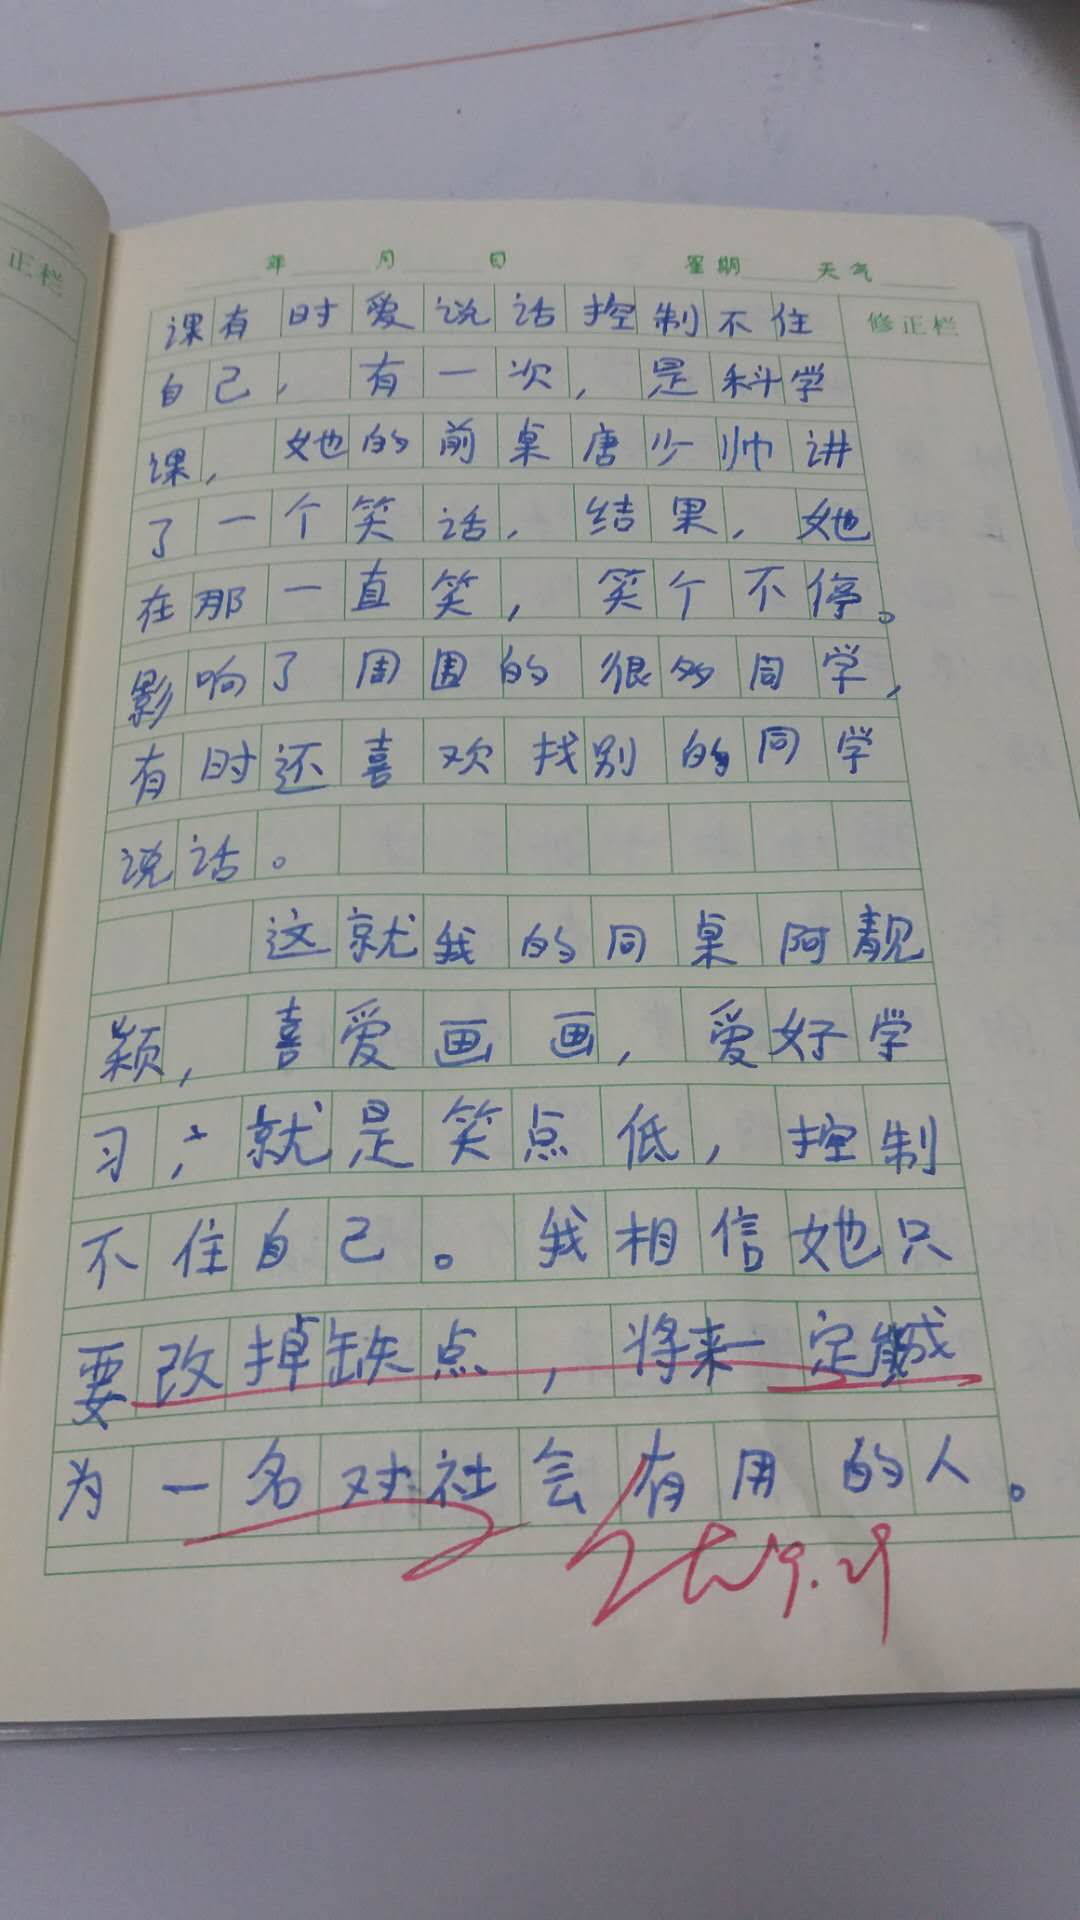 正栏
年 月 日 星期 天气
修正栏
课有时爱说话控制不住
自己，有一次，是科学
课，她的前桌唐少帅讲
了一个笑话，结果，她
在那一直笑，笑个不停。
影响了周围的很多同学，
有时还喜欢找别的同学
说话。
这就我的同桌阿靓
颖，喜爱画画，爱好学
习，就是笑点低，控制
不住自己。我相信她只
要改掉缺点，将来一定能成
为一名对社会有用的人。
9.29